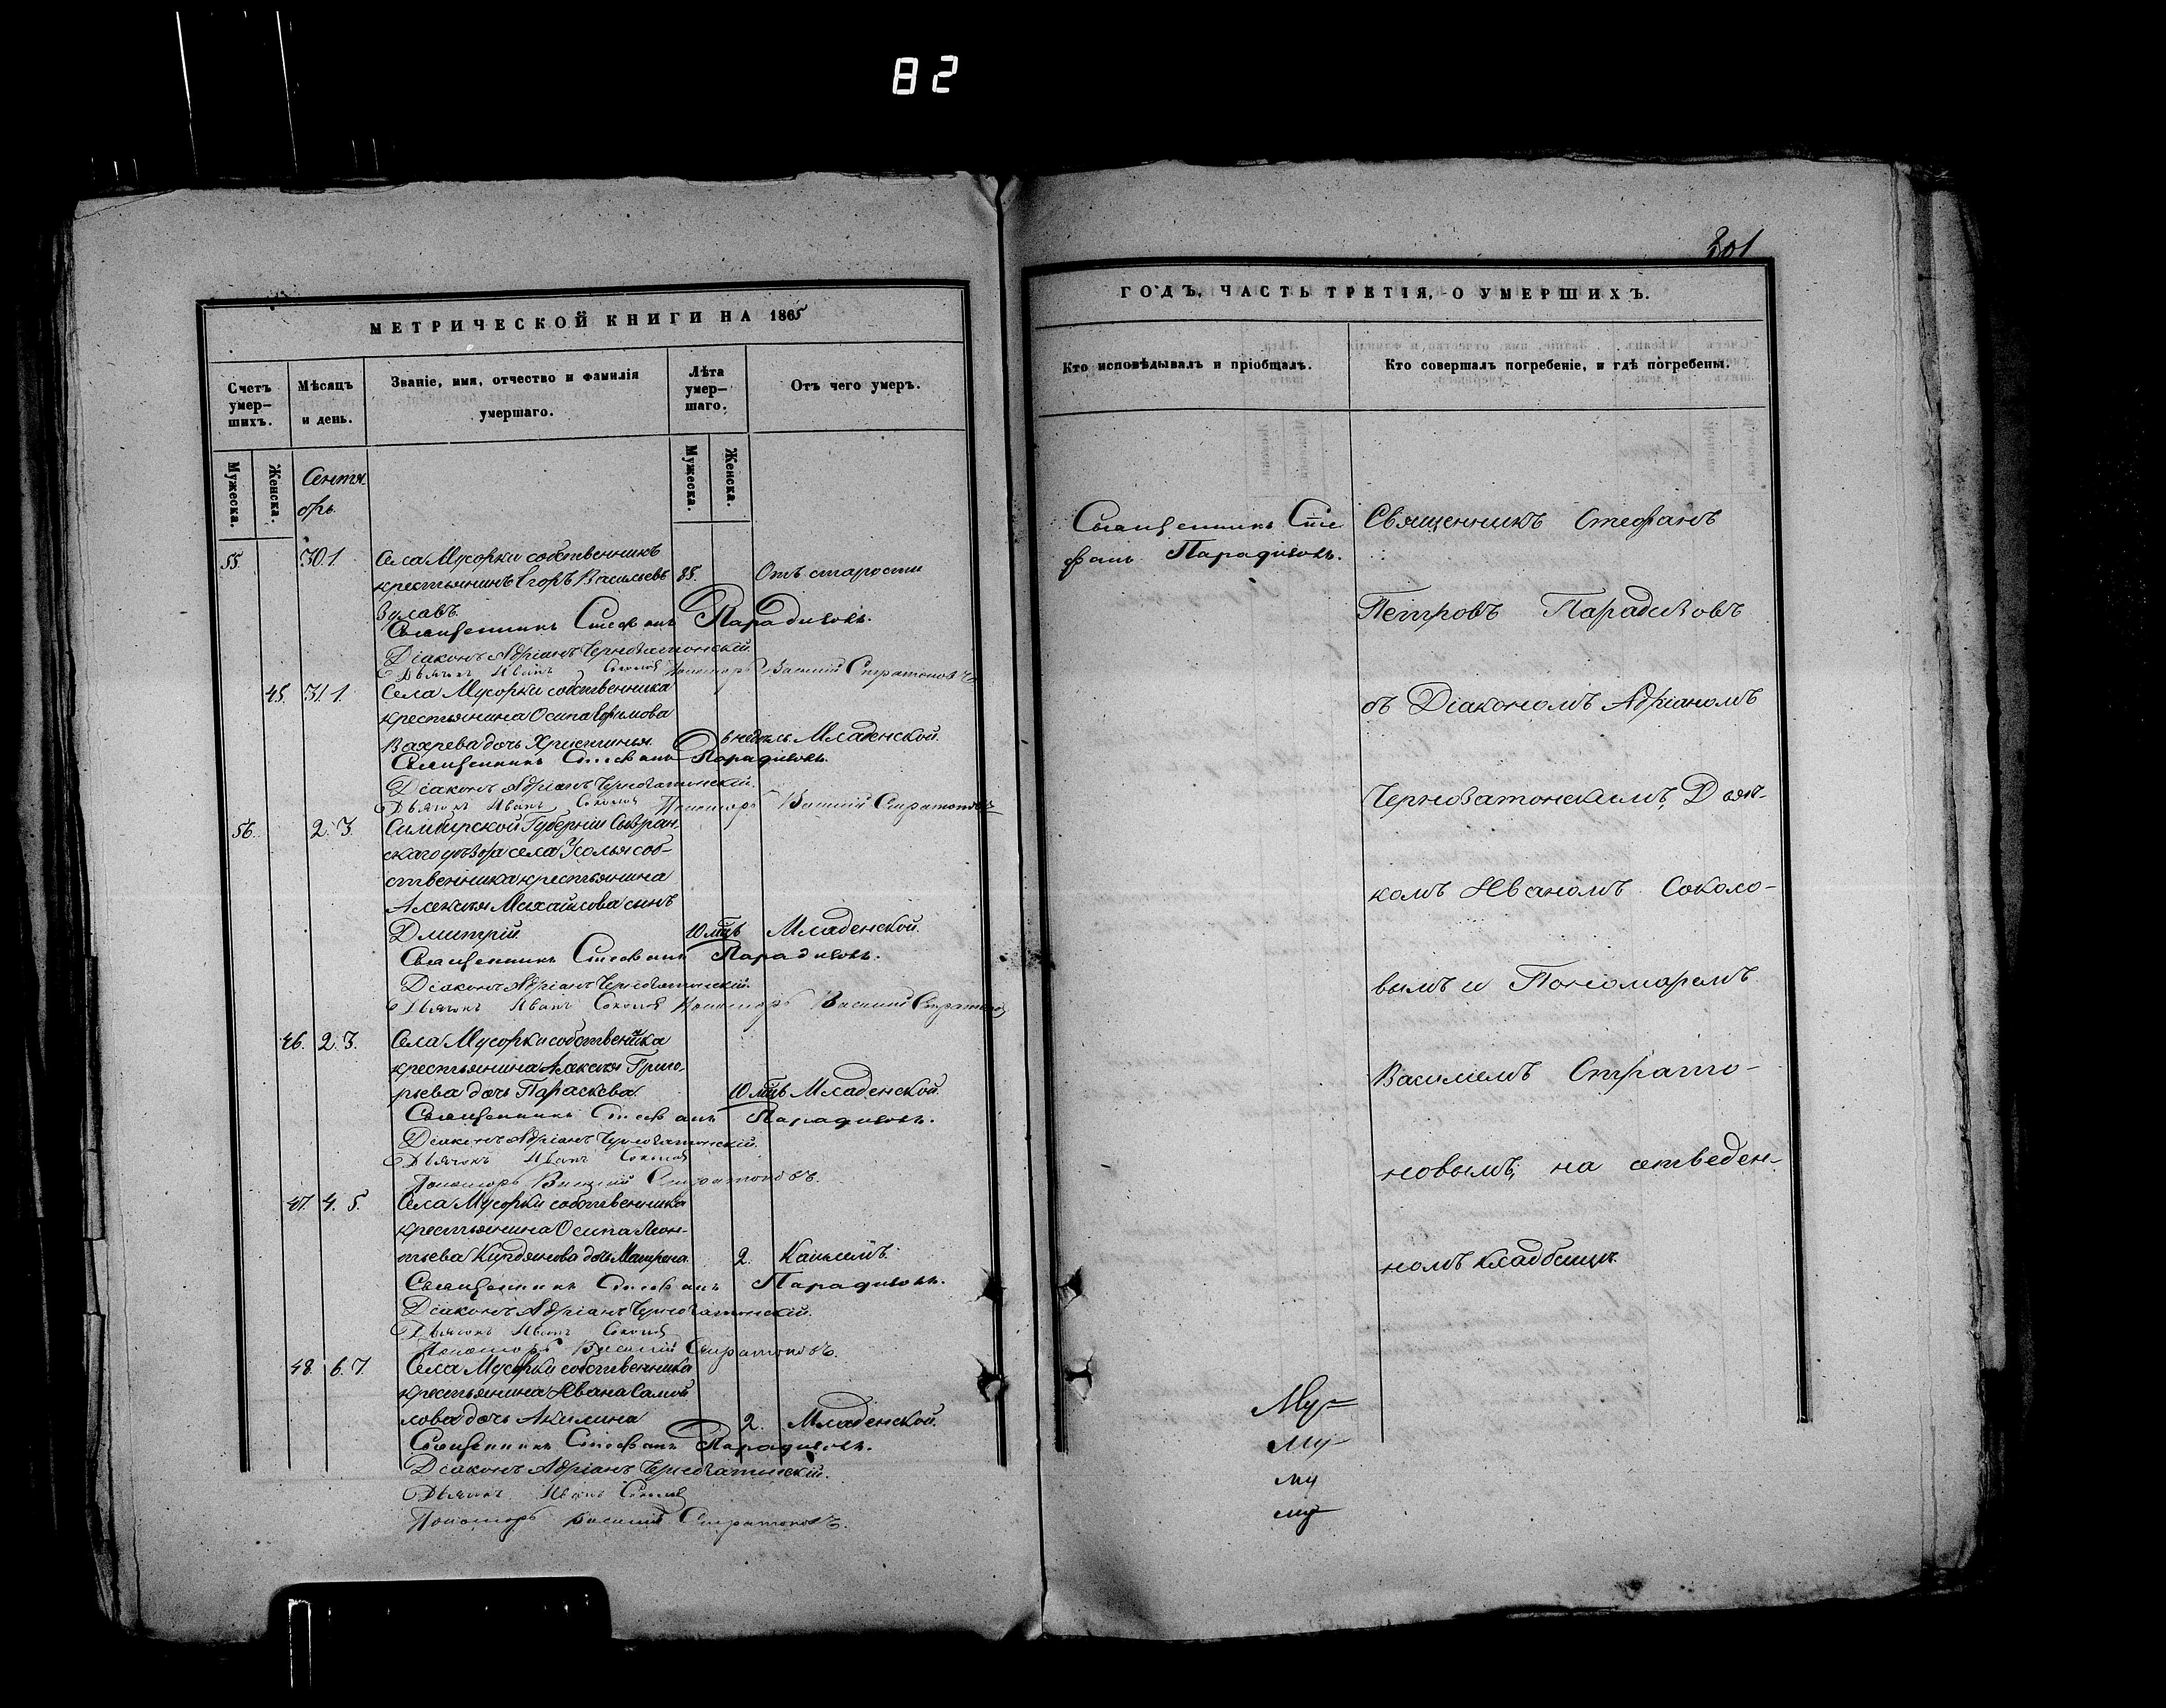 82
301
МЕТРИЧЕСКОЙ КНИГИ НА 1865
Счетъ умер-шихъ.
Мѣсяцъ и день.
Званіе, имя, отчество и фамилія умершаго.
Лѣта умер-шаго.
Отъ чего умеръ.
Мужеска.
Женска.
Мужеска.
Женска.
Сентя
брь.
55. 30. 1. Села Мусорки собственникъ
крестьянинъ Егоръ Васильевъ 85. Отъ старости
Священникъ Стефанъ Парадизовъ.
Діаконъ Адріанъ Черноватонскій.
Дьячокъ Иванъ Соколов Пономарь Василий Стратоновъ
45. 31. 1. Села Мусорки собственника
крестьянина Осипа Ефимова
Вахрева дочь Христинья. 6 недѣль Младенской.
Священникъ Стефанъ Парадизовъ.
Діаконъ Адріанъ Черноватонскій.
Дьячокъ Иванъ Соколов Пономарь Василий Стратоновъ
56. 2. 3. Симбирской Губерніи Сызран
скаго уѣзда села Усолья соб-
ственника крестьянина
Алексѣя Михайлова сынъ
Дмитрій. 10 мцъ Младенской.
Священникъ Стефанъ Парадизовъ.
Діаконъ Адріанъ Черноватонскій
Дьячокъ Иванъ Соколов Пономарь Василий
46. 2. 3. Села Мусорки собственника
крестьянина Алексѣя Григо-
рьева дочь Параскева. 10 мцъ Младенской.
Священникъ Стефанъ Парадизовъ.
Діаконъ Адріанъ Черноватонскій.
Дьячокъ Иванъ Соколов
Пономарь Василий Стратоновъ.
47. 4. 5. Села Мусорки собственника
крестьянина Осипа Леон-
тьева Кирдянова дочь Матрена. 2. Кашлемъ.
Священникъ Стефанъ Парадизовъ.
Діаконъ Адріанъ Черноватонскій.
Дьячокъ Иванъ Соколов
Пономарь Василий Стратоновъ.
48. 6. 7. Села Мусорки собственника
крестьянина Ивана Самой
лова дочь Акилина 2. Младенской.
Священникъ Стефанъ Парадизовъ.
Діаконъ Адріанъ Черноватонскій.
Дьячокъ Иванъ Соколов
Пономарь Василий Стратоновъ.
ГОДЪ, ЧАСТЬ ТРЕТІЯ, О УМЕРШИХЪ.
Кто исповѣдывалъ и пріобщалъ.
Кто совершалъ погребеніе, и гдѣ погребены.
Священникъ Сте
фанъ Парадизовъ.
Священникъ Стефанъ
Петровъ Парадизовъ
съ Діакономъ Адріаномъ
Черноватонскимъ, Дьяч-
комъ Иваномъ Соколо-
вымъ и Пономаремъ
Василіемъ Страто-
новымъ, на отведен-
номъ кладбищѣ.
Му
Му
му
му